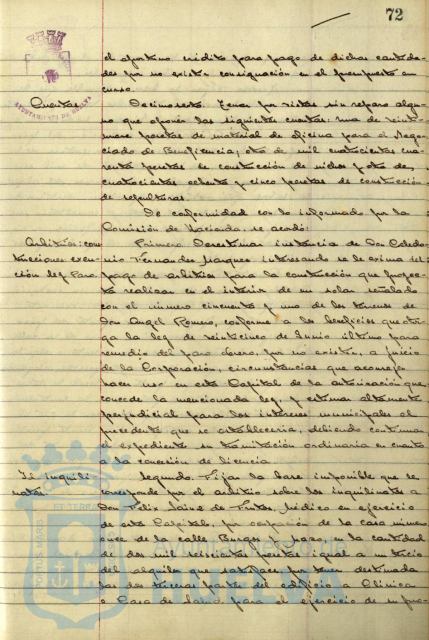 72
el oportuno crédito para pago de dichas cantida-
des por no existir consignación en el presupuesto en
curso.
Cuentas
Decimosexto. Tener por vistas sin reparo algu-
no que oponer las siguientes cuentas: una de veinti-
nueve pesetas de material de oficina para el Nego-
ciado de Beneficencia; otra de mil cuatrocientas cua-
renta pesetas de construcción de nichos y otra de
cuatrocientas ochenta y cinco pesetas de construcción
de sepulturas.
De conformidad con lo informado por la
Comisión de Hacienda, se acordó:
Arbitrios: cons
trucciones exen-
ción ley Paro.
Primero. Desestimar instancia de Don Celedo-
nio Fernandez Marquez interesando se le exima del
pago de arbitrios para la construcción que proyec-
ta realizar en el interior de un solar señalado
con el número cincuenta y uno de los terrenos de
Don Angel Romero, conforme a los beneficios que otor-
ga la ley de veinticinco de Junio último para
remedio del paro obrero, por no existir, a juicio
de la Corporación, circunstancias que aconsejen
hacer uso en esta Capital de la autorización que
concede la mencionada ley, y estimar altamente
perjudicial para los intereses municipales el
precedente que se establecería, debiendo continuar
el expediente su tramitación ordinaria en cuanto
a la concesión de licencia.
Id. inquili
natos.
Segundo. Fijar la base imponible que se
corresponde por el arbitrio sobre los inquilinatos a
Don Felix Sainz de Médico en ejercicio
de esta Capital, por ocupación de la casa número
once de la calle Burgos y Mazo, en la cantidad
de dos mil seiscientas pesetas igual a un tercio
del alquiler que satisface, por tener destinada
las dos terceras partes del edificio a Clinica
o Casa de Salud para el ejercicio de su pro-
AYUNTAMIENTO DE HUELVA
PORTUS MARIS ET TERRAE
HUELVA